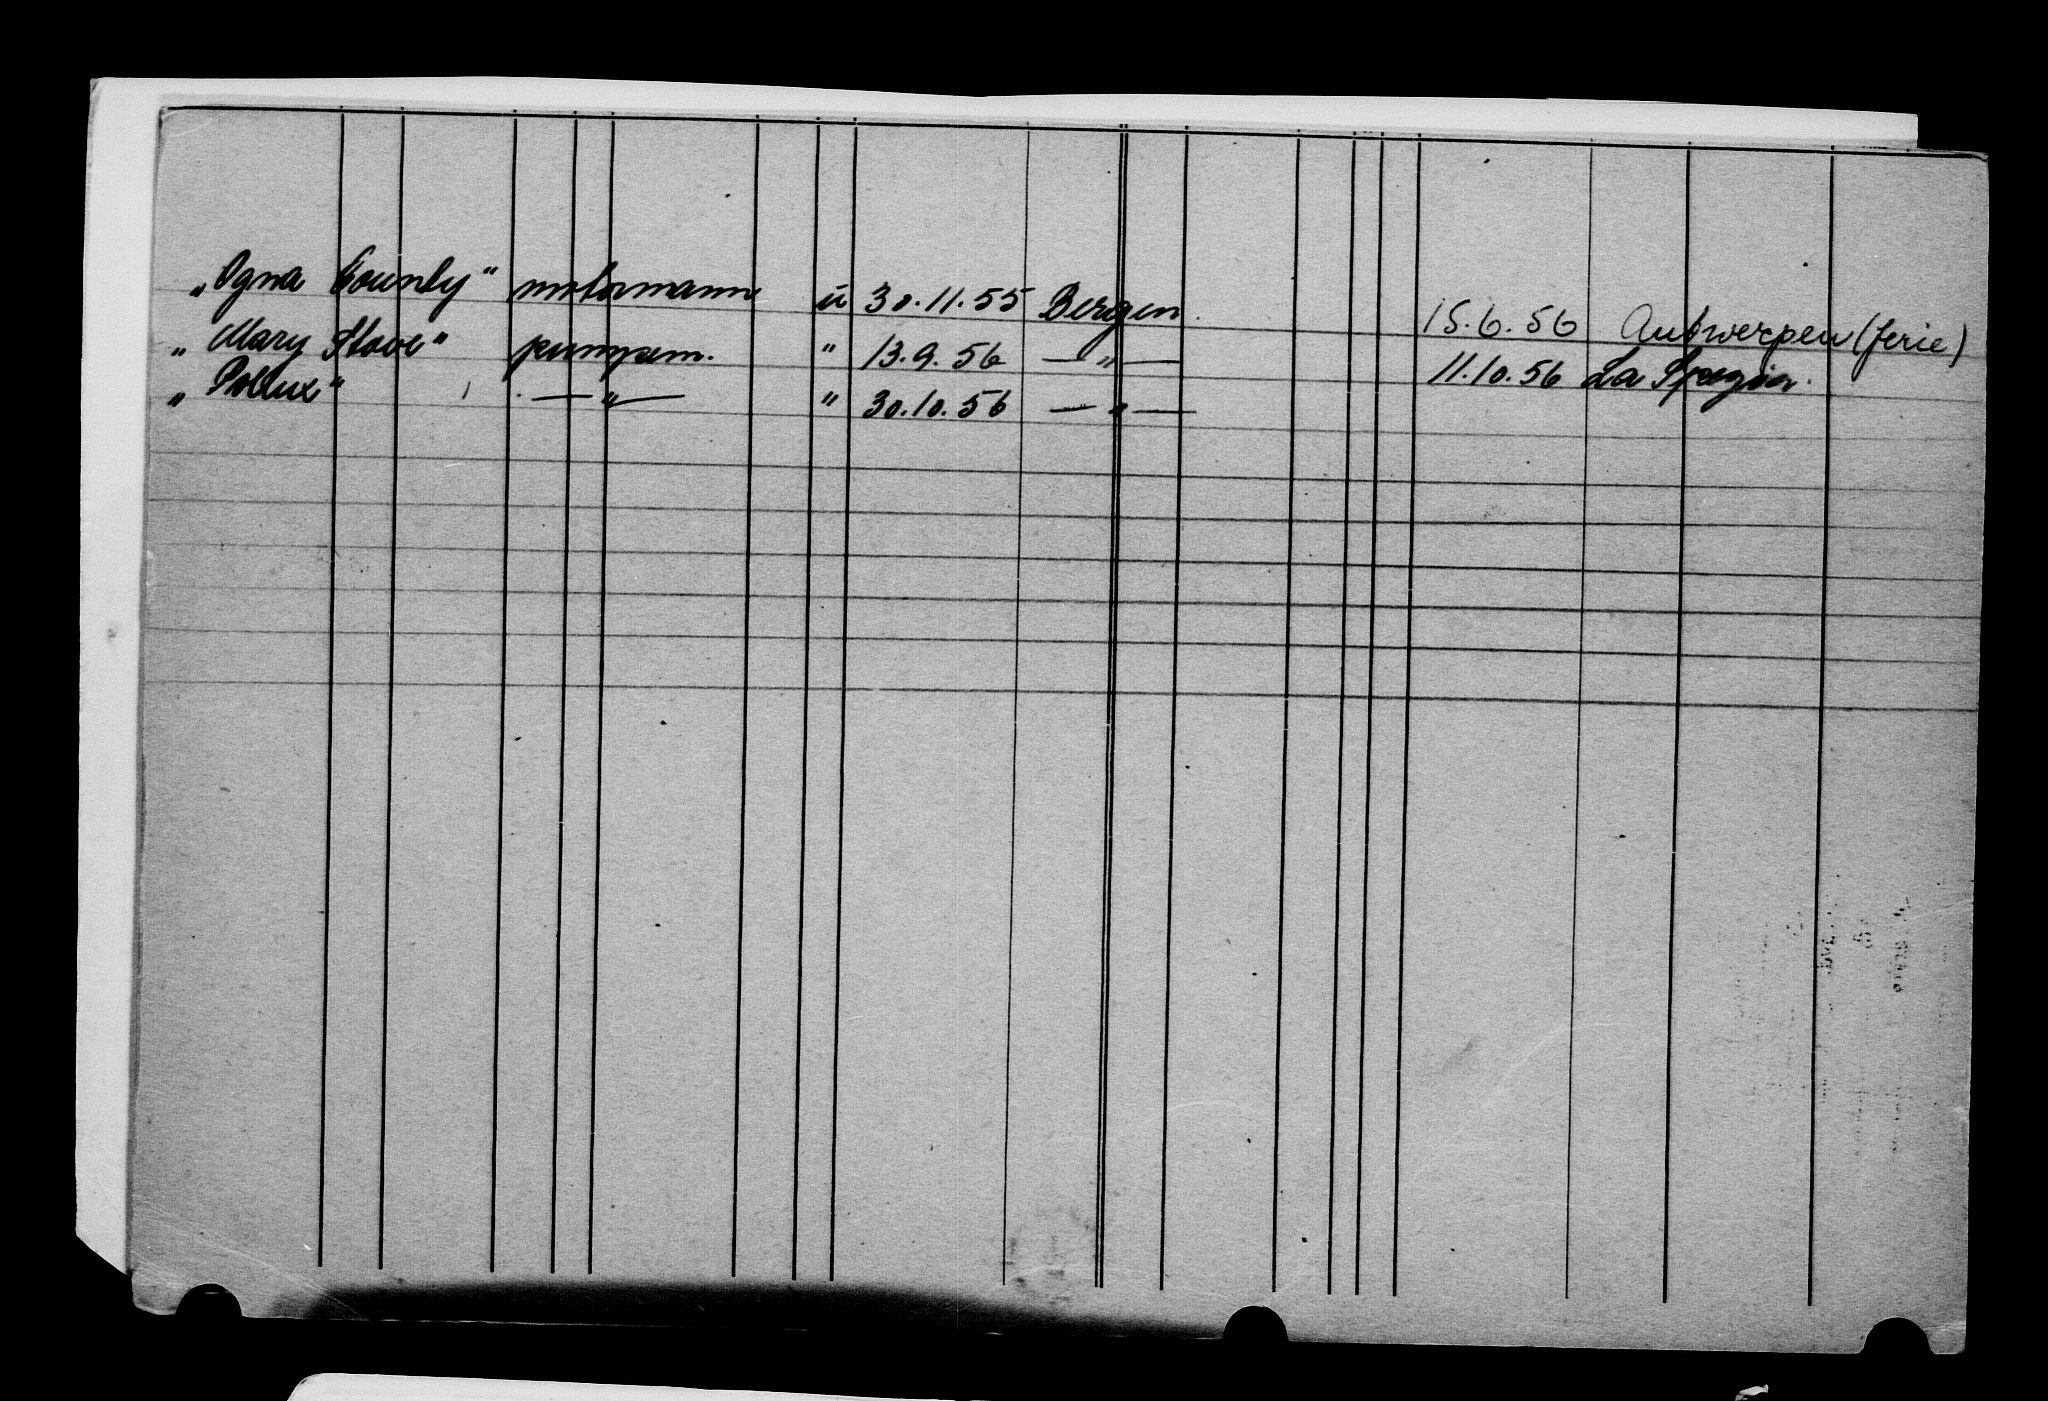 „Ogna County" motormann ü 30.11.55 Bergen 15.6.56 Antwerpen (ferie)
„Mary Stove" pumpem. " 13.9.56 — " — 11.10.56 La Spezia.
„Pollux" — " — " 30.10.56 — " —